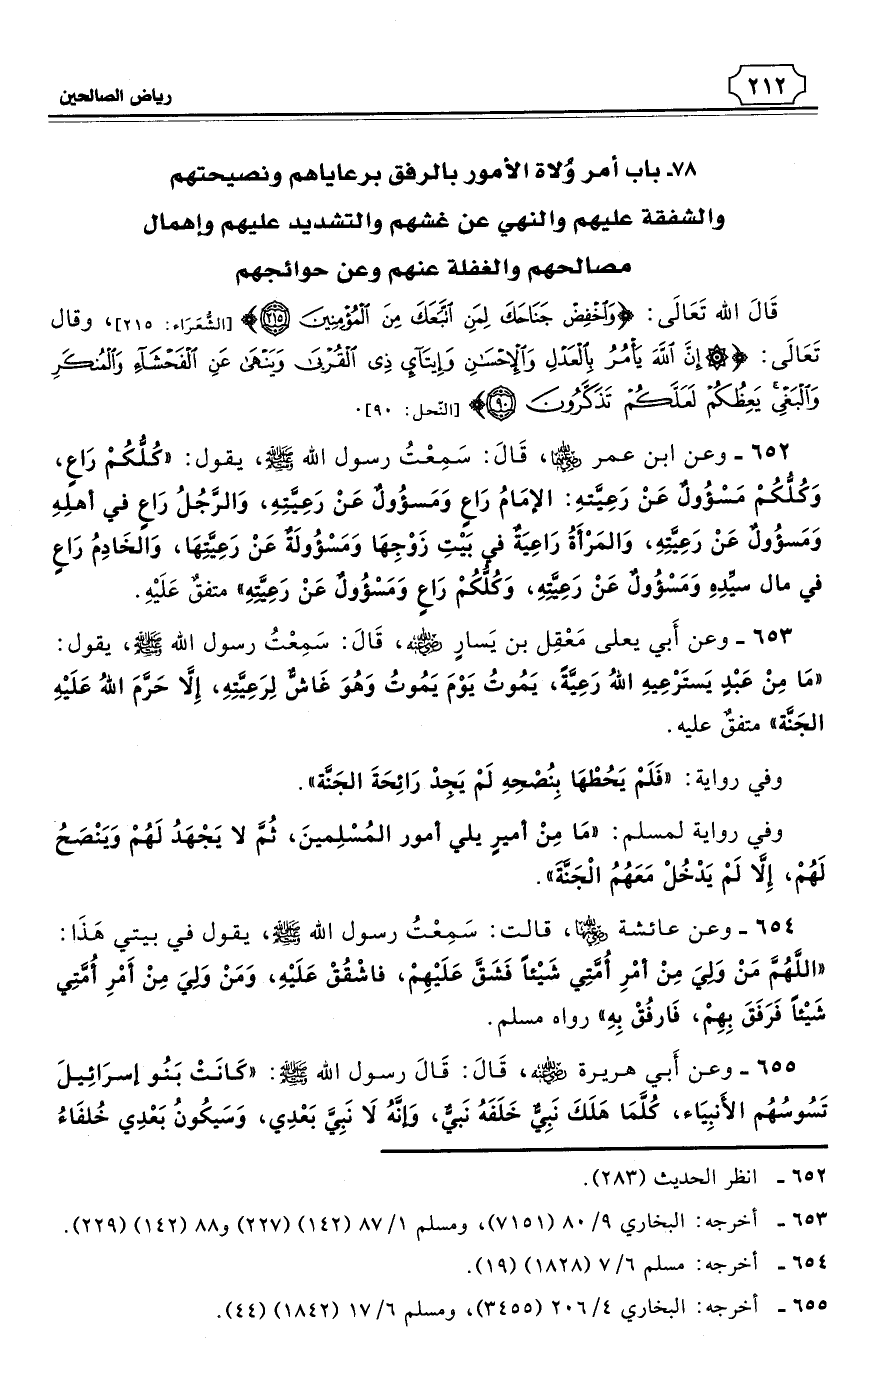 ٢١٢
رياض الصالحين
٧٨ـ باب أمر وُلاة الأمور بالرفق برعاياهم ونصيحتهم
والشفقة عليهم والنهي عن غشهم والتشديد عليهم وإهمال
مصالحهم والغفلة عنهم وعن حوائجهم
قَالَ الله تَعَالَى: ﴿وَاخْفِضْ جَنَاحَكَ لِمَنِ اتَّبَعَكَ مِنَ الْمُؤْمِنِينَ ٢١٥﴾ [الشُّعَرَاء: ٢١٥]، وقال
تَعَالَى: ﴿۞ إِنَّ اللَّهَ يَأْمُرُ بِالْعَدْلِ وَالْإِحْسَٰنِ وَإِيتَآيِٕ ذِى الْقُرْبَىٰ وَيَنْهَىٰ عَنِ الْفَحْشَآءِ وَالْمُنكَرِ
وَالْبَغْىِ ۚ يَعِظُكُمْ لَعَلَّكُمْ تَذَكَّرُونَ ٩٠﴾ [النّحل: ٩٠].
٦٥٢ ـ وعن ابن عمر رضي الله عنهما، قَالَ: سَمِعْتُ رسول الله ﷺ، يقول: «كُلُّكُمْ رَاعٍ،
وَكُلُّكُمْ مَسْؤُولٌ عَنْ رَعِيَّتهِ: الإمَامُ رَاعٍ وَمَسؤُولٌ عَنْ رَعِيَّتِهِ، وَالرَّجُلُ رَاعٍ في أهلِهِ
وَمَسؤُولٌ عَنْ رَعِيَّتِهِ، وَالمَرْأَةُ رَاعِيَةٌ في بَيْتِ زَوْجِهَا وَمَسْؤُولَةٌ عَنْ رَعِيَّتِهَا، وَالخَادِمُ رَاعٍ
في مال سيِّدِهِ وَمَسْؤُولٌ عَنْ رَعِيَّتِهِ، وَكُلُّكُمْ رَاعٍ وَمَسْؤُولٌ عَنْ رَعِيَّتِهِ» متفقٌ عَلَيْهِ.
٦٥٣ ـ وعن أَبي يعلى مَعْقِل بن يَسارٍ رضي الله عنه، قَالَ: سَمِعْتُ رسول الله ﷺ، يقول:
«مَا مِنْ عَبْدٍ يَستَرْعِيهِ اللهُ رَعِيَّةً، يَمُوتُ يَوْمَ يَمُوتُ وَهُوَ غَاشٌّ لِرَعِيَّتِهِ، إِلَّا حَرَّمَ اللهُ عَلَيْهِ
الجَنَّة» متفقٌ عليه.
وفي رواية: «فَلَمْ يَحُطْهَا بِنُصْحِهِ لَمْ يَجِدْ رَائِحَةَ الجَنَّة».
وفي رواية لمسلم: «مَا مِنْ أميرٍ يلي أمور المُسْلِمينَ، ثُمَّ لا يَجْهَدُ لَهُمْ وَيَنْصَحُ
لَهُمْ، إِلَّا لَمْ يَدْخُلْ مَعَهُمُ الْجَنَّةَ».
٦٥٤ ـ وعن عائشة رضي الله عنها، قالت: سَمِعْتُ رسول الله ﷺ، يقول في بيتي هَذَا:
«اللَّهُمَّ مَنْ وَلِيَ مِنْ أمْرِ أُمَّتِي شَيْئاً فَشَقَّ عَلَيْهِمْ، فاشْقُقْ عَلَيْهِ، وَمَنْ وَلِيَ مِنْ أَمْرِ أُمَّتِي
شَيْئاً فَرَفَقَ بِهِمْ، فَارفُقْ بِهِ» رواه مسلم.
٦٥٥ ـ وعن أَبي هريرة رضي الله عنه، قَالَ: قَالَ رسول الله ﷺ: «كَانَتْ بَنُو إسرَائِيلَ
تَسُوسُهُم الأَنبِيَاء، كُلَّمَا هَلَكَ نَبِيٌّ خَلَفَهُ نَبيٌّ، وَإنَّهُ لَا نَبِيَّ بَعْدِي، وَسَيكُونُ بَعْدِي خُلفَاءُ
٦٥٢ ـ انظر الحديث (٢٨٣).
٦٥٣ ـ أخرجه: البخاري ٩/ ٨٠ (٧١٥١)، ومسلم ١/ ٨٧ (١٤٢) (٢٢٧) و٨٨ (١٤٢) (٢٢٩).
٦٥٤ ـ أخرجه: مسلم ٦/ ٧ (١٨٢٨) (١٩).
٦٥٥ ـ أخرجه: البخاري ٤/ ٢٠٦ (٣٤٥٥)، ومسلم ٦/ ١٧ (١٨٤٢) (٤٤).